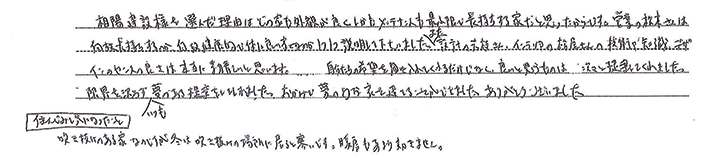 相陽建設様を選んだ理由はどの家も外観が良くしかもメンテナンスも最小限で長持ちする家だと思ったからです。営業の松本さんは
何故長持ちするのか、何故健康的な住いなのか 説明して下さいました。また 設計の さん、インテリアの さんの技術力、知識、そして
センスの良さは本当に素晴しいと思います。 自分たちの希望を聞き入れてくれるだけじゃなく、良いと思うものは 次々と提案してくれました。
限界を決めず いつも 夢のある提案をして下さいました。おかげで夢のような家を建てることができました。ありがとうございました
住んでみて気になったこと
吹き抜けのある家なのですが冬は吹き抜けの場所に居ると寒いです。暖房もあまり効きません。